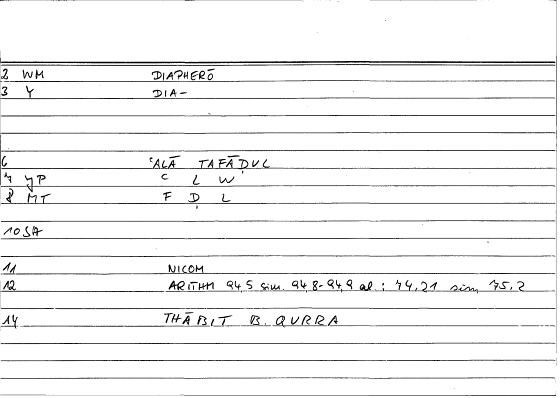 2 WM DIAPHERŌ
3 Y DIA-
6 ʿALĀ TAFĀḌUL
7 yP ʿ L W
8 MT F Ḍ L
10 SA
11 NICOM
12 ARITHM 94,5 sim. 94,8-94,9 al : 74,21 sim 75,2
14 THĀBIT B. QURRA